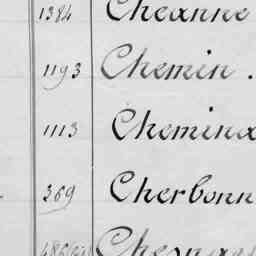 1384 Cheanne
1193 Chemin.
1113 Chemina
369 Cherbonn